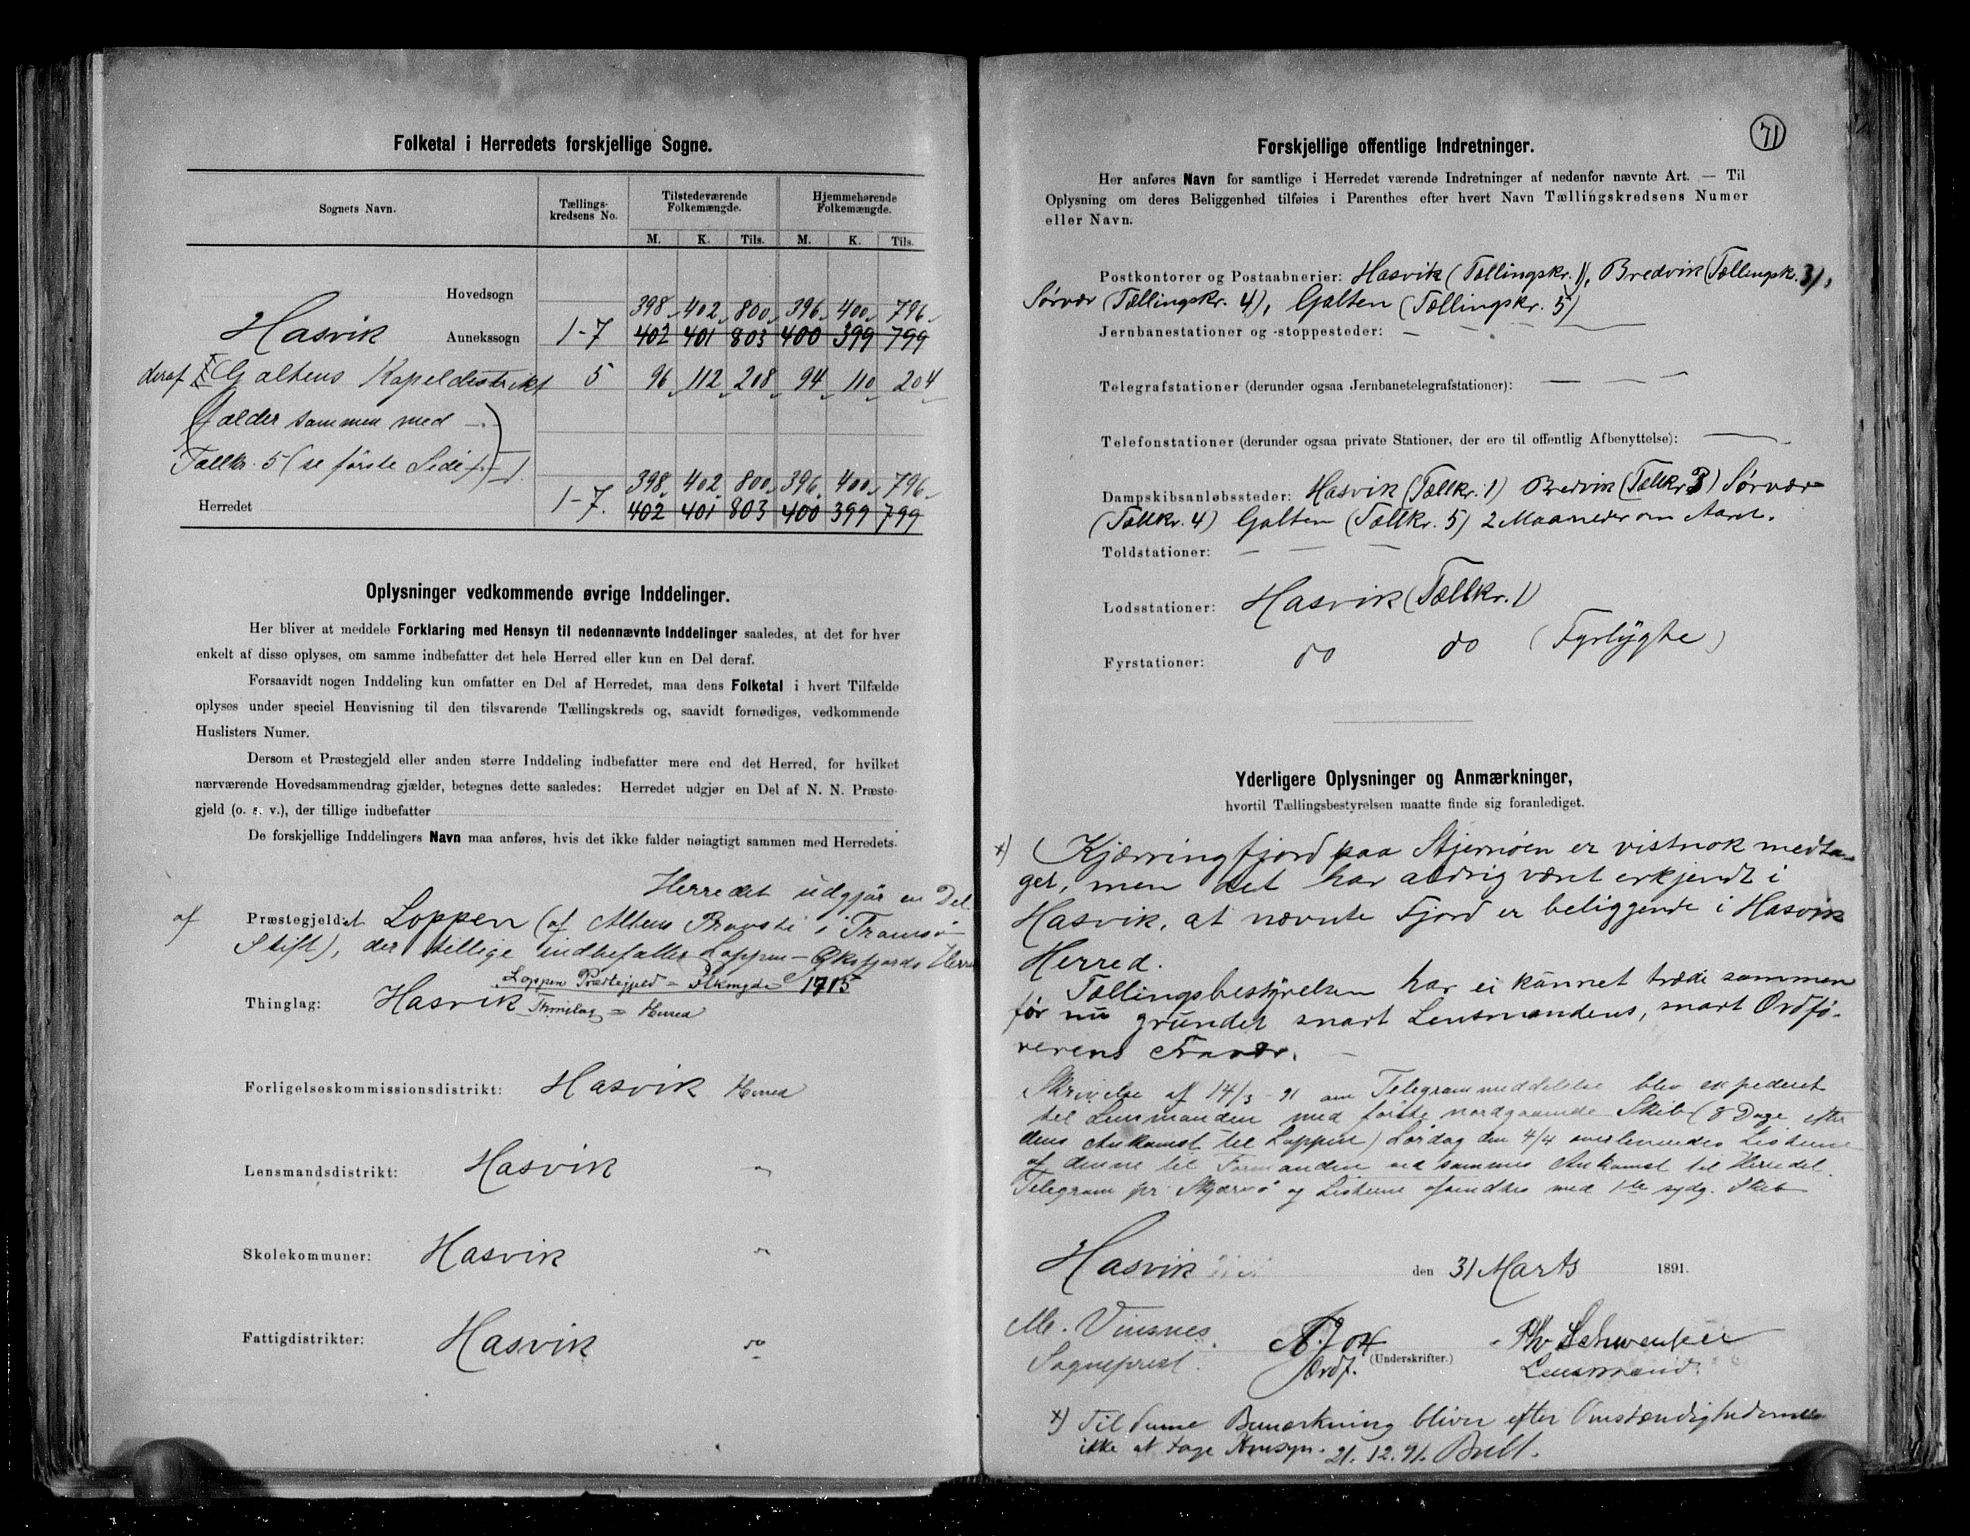 Folketal i Herredets forskjellige Sogne.
Sognets Navn. Tællings-kredsens No. Tilstedeværende Folkemængde. Hjemmehørende Folkemængde.
M. K. Tils. M. K. Tils.
Hovedsogn
398 402 800 396 400 796
Hasvik Annekssogn 1-7 402 401 803 400 399 799
deraf Galtens Kapeldistrikt 5 96 112 208 94 110 204
(falder sammen med
Tællkr. 5 (se første Side)
398 402 800 396 400 796
Herredet 1-7. 402 401 803 400 399 799
Oplysninger vedkommende øvrige Inddelinger.
Her bliver at meddele Forklaring med Hensyn til nedennævnte Inddelinger saaledes, at det for hver
enkelt af disse oplyses, om samme indbefatter det hele Herred eller kun en Del deraf.
Forsaavidt nogen Inddeling kun omfatter en Del af Herredet, maa dens Folketal i hvert Tilfælde
oplyses under speciel Henvisning til den tilsvarende Tællingskreds og, saavidt fornødiges, vedkommende
Huslisters Numer.
Dersom et Præstegjeld eller anden større Inddeling indbefatter mere end det Herred, for hvilket
nærværende Hovedsammendrag gjælder, betegnes dette saaledes: Herredet udgjør en Del af N. N. Præste-
gjeld (o. s. v.), der tillige indbefatter
De forskjellige Inddelingers Navn maa anføres, hvis det ikke falder nøiagtigt sammen med Herredets.
Herredet udgjør en Del
af Præstegjeldet Loppen (af Altens Provsti i Tromsø
Stift), der tillige indbefatter Loppen-Øksfjords Herred
Loppen Præstegjeld = Flkmgde 1715
Thinglag: Hasvik Thinglag = Herred
Forligelseskommissionsdistrikt: Hasvik Herred
Lensmandsdistrikt: Hasvik "
Skolekommuner: Hasvik "
Fattigdistrikter: Hasvik do
71
Forskjellige offentlige Indretninger.
Her anføres Navn for samtlige i Herredet værende Indretninger af nedenfor nævnte Art. — Til
Oplysning om deres Beliggenhed tilføies i Parenthes efter hvert Navn Tællingskredsens Numer
eller Navn.
Postkontorer og Postaabnerier: Hasvik (Tællingskr. 1), Bredvik (Tællingsk. 3),
Sørvær (Tællingskr. 4), Galten (Tællingskr. 5)
Jernbanestationer og -stoppesteder: — — —
Telegrafstationer (derunder ogsaa Jernbanetelegrafstationer): — — —
Telefonstationer (derunder ogsaa private Stationer, der ere til offentlig Afbenyttelse): —
Dampskibsanløbssteder: Hasvik (Tællkr. 1) Bredvik (Tællkr 3) Sørvær
(Tællkr. 4) Galten (Tællkr. 5) 2 Maaneder om Aaret.
Toldstationer: — — —
Lodsstationer: Hasvik (Tællkr. 1)
Fyrstationer: do do (Fyrlygte)
Yderligere Oplysninger og Anmærkninger,
hvortil Tællingsbestyrelsen maatte finde sig foranlediget.
x) Kjærringfjord paa Stjernøen er vistnok medta-
get, men det har aldrig været erkjendt i
Hasvik, at nævnte Fjord er beliggende i Hasvik
Herred.
Tællingsbestyrelsen har ei kunnet træde sammen
før nu grundet snart Lensmandens, snart Ordfø-
rerens Fravær. —
Skrivelse af 14/3 - 91 om Telegrammeddelelse blev expederet
til Lensmanden med første nordgaaende Skib (8 Dage efter
dens Ankomst til Loppen) Lørdag den 4/4 overleveredes Listerne
af denne til Formanden ved sammes Ankomst til Herredet.
Telegram pr. Skjærvø og Listerne afsendtes med 1ste sydg. Skib
Hasvik den 31 Marts 1891.
M. Vinsnes
Sogneprest.
Ordf.
(Underskrifter.)
Lensmand.
x) Til denne Bemærkning bliver efter Omstændighederne
ikke at tage Hensyn. 21.12.91.